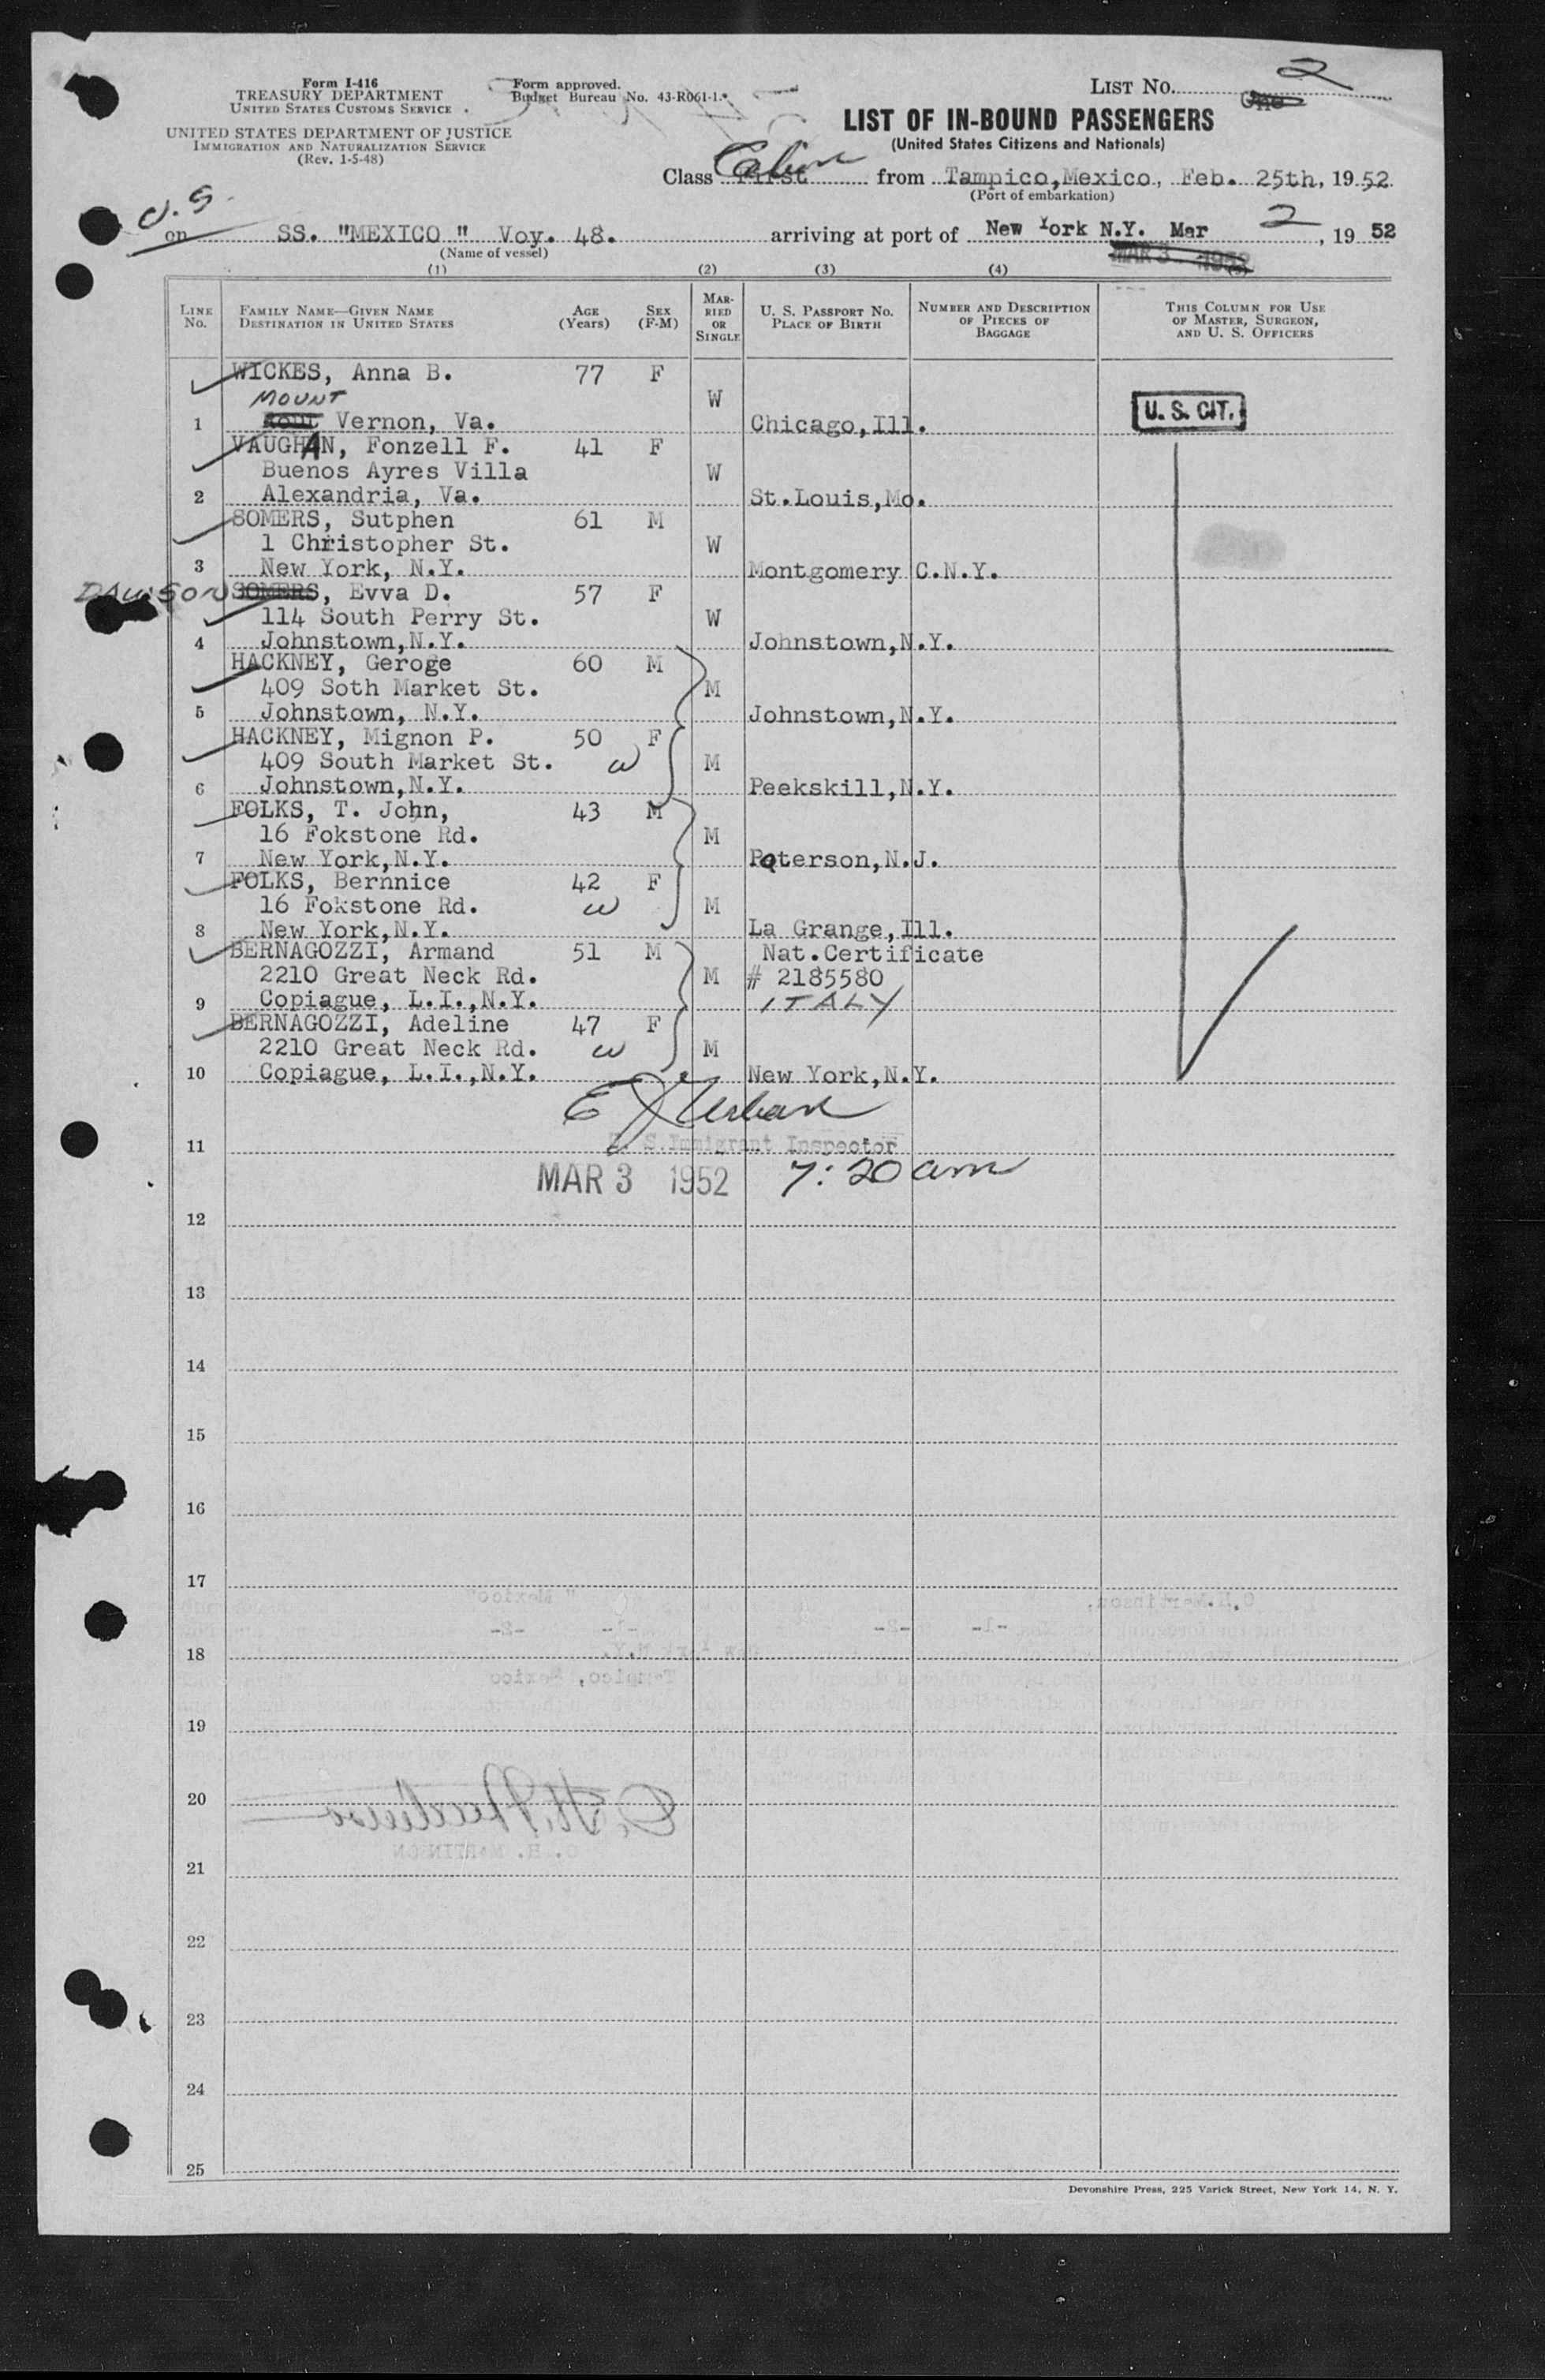 Form I-416
TREASURY DEPARTMENT
UNITED STATES CUSTOMS SERVICE
UNITED STATES DEPARTMENT OF JUSTICE
IMMIGRATION AND NATURALIZATION SERVICE
(Rev. 1-5-48)
Form approved.
Budget Bureau No. 43-R061-1.
LIST NO. One 2
LIST OF IN-BOUND PASSENGERS
(United States Citizens and Nationals)
Class First Cabin from Tampico,Mexico, Feb. 25th, 1952
(Port of embarkation)
U.S.
on SS. "MEXICO " Voy. 48. arriving at port of New York N.Y. Mar 2, 19 52
(Name of vessel)
MAR 3 1952
(1) (2) (3) (4) (5)
LINE No. FAMILY NAME—GIVEN NAME DESTINATION IN UNITED STATES AGE (Years) SEX (F-M) MARRIED OR SINGLE U. S. PASSPORT NO. PLACE OF BIRTH NUMBER AND DESCRIPTION OF PIECES OF BAGGAGE THIS COLUMN FOR USE OF MASTER, SURGEON, AND U. S. OFFICERS
WICKES, Anna B. 77 F
MOUNT W U. S. CIT.
1 Vernon, Va. Chicago,Ill.
VAUGHAN, Fonzell F. 41 F
Buenos Ayres Villa W
2 Alexandria, Va. St.Louis,Mo.
SOMERS, Sutphen 61 M
1 Christopher St. W
3 New York, N.Y. Montgomery C.N.Y.
DAVISON SOMERS, Evva D. 57 F
114 South Perry St. W
4 Johnstown,N.Y. Johnstown,N.Y.
HACKNEY, Geroge 60 M
409 Soth Market St. M
5 Johnstown, N.Y. Johnstown,N.Y.
HACKNEY, Mignon P. 50 F
409 South Market St. W M
6 Johnstown,N.Y. Peekskill,N.Y.
FOLKS, T. John, 43 M
16 Fokstone Rd. M
7 New York,N.Y. Paterson,N.J.
FOLKS, Bernnice 42 F
16 Fokstone Rd. W M
8 New York,N.Y. La Grange,Ill.
BERNAGOZZI, Armand 51 M Nat.Certificate
2210 Great Neck Rd. M # 2185580
9 Copiague, L.I.,N.Y. ITALY
BERNAGOZZI, Adeline 47 F
2210 Great Neck Rd. W M
10 Copiague, L.I.,N.Y. New York,N.Y.
E J Urban
11 U. S. Immigrant Inspector
MAR 3 1952 7:20 am
12
13
14
15
16
17
18
19
20
21
22
23
24
25
Devonshire Press, 225 Varick Street, New York 14, N. Y.